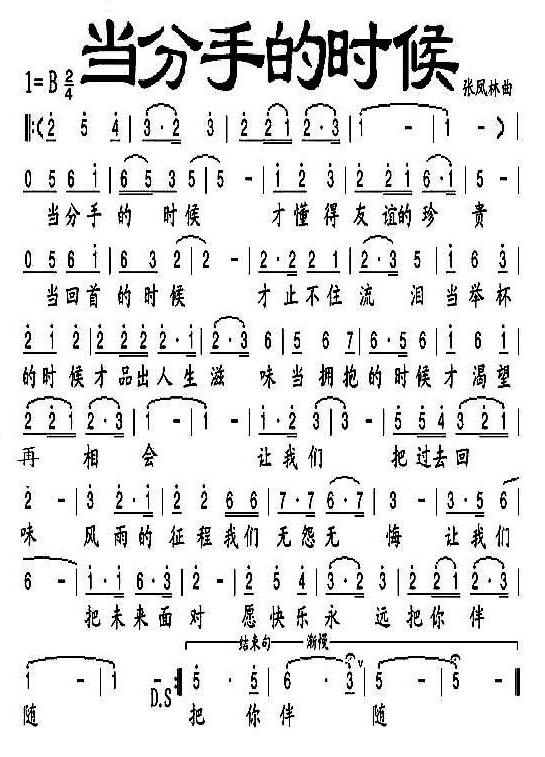 当分手的时候
1=B 2/4
张凤林曲
2 5 4 | 3·2 3 | 2 2 1 2·3 | 1 - | 1 -
0 5 6 1 | 6 5 3 5 | 5 - | 1 2 3 | 2 2 1 6·1 | 5 - |
当分手的时候 才懂得友谊的珍贵
0 5 6 1 | 6 3 2 | 2 - | 2·2 2 1 | 2·3 | 1 6 3 |
当回首的时候 才止不住流泪当举杯
2 1 2 | 2 2 2 2·1 | 2·3 | 5 6 7 | 6·5 6 | 1 6 1 |
的时候才品出人生滋味当拥抱的时候才渴望
2 2 1 2·3 | 1 - | 1 - | 2·1 2 | 3 3 - | 5 5 4 3 2 1 |
再相会 让我们 把过去回
2 - | 3 2·1 | 2 2 2 6 6 | 7·7 7 6 | 6·7 | 3 5 6 |
味 风雨的征程我们无怨无悔 让我们
6 - | 1·1 6·3 | 2 - | 5 5 5 | 3·2 3 | 2 2 1 2·3 |
把未来面对 愿快乐永远把你伴
结束句 渐慢
1 - | 1 - D.S :‖ 5· 5 | 6· 3 | 5 - | 5 - ‖
随 把你伴随